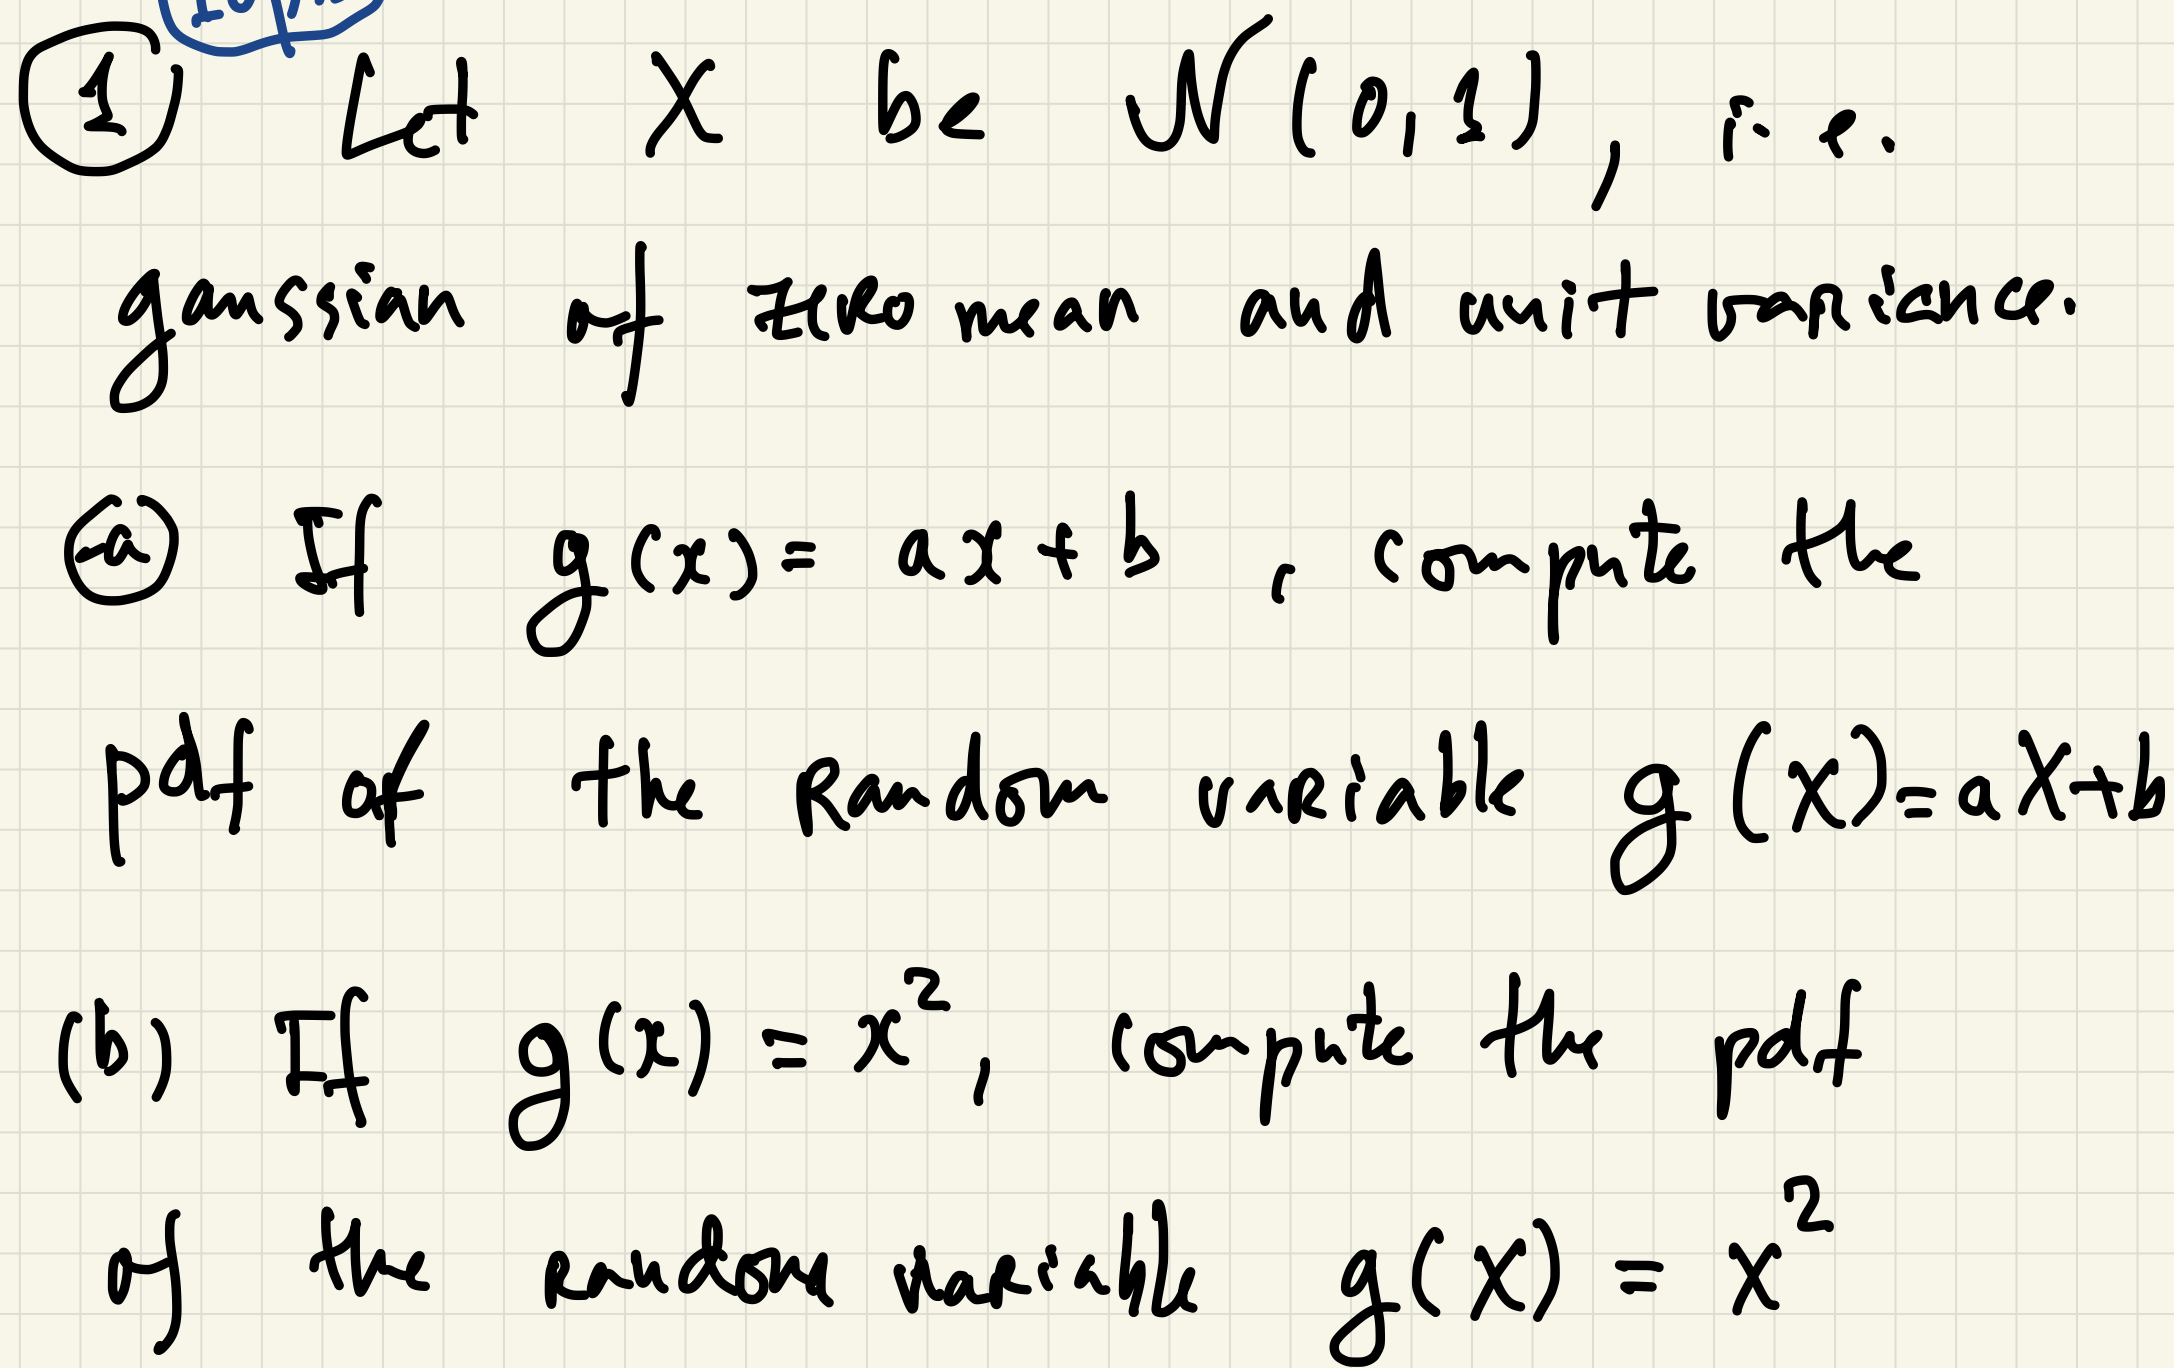 ① Let X be N(0,1), i.e.
gaussian of zero mean and unit variance.
ⓐ If g(x) = ax + b, compute the
pdf of the Random variable g(X) = aX+b
(b) If g(x) = x², compute the pdf
of the Random variable g(X) = X²